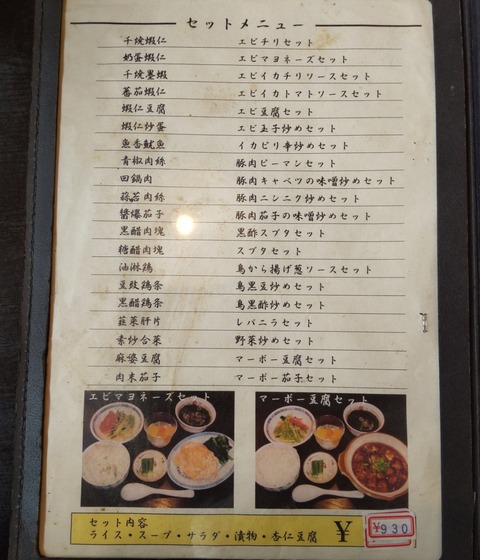 セットメニュー
干焼蝦仁 エビチリセット
奶蛋蝦仁 エビマヨネーズセット
干焼墨蝦 エビイカチリソースセット
蕃茄蝦仁 エビイカトマトソースセット
蝦仁豆腐 エビ豆腐セット
蝦仁炒蛋 エビ玉子炒めセット
魚香魷魚 イカピリ辛炒めセット
青椒肉絲 豚肉ピーマンセット
回鍋肉 豚肉キャベツの味噌炒めセット
蒜苔肉絲 豚肉ニンニク炒めセット
醤爆茄子 豚肉茄子の味噌炒めセット
黒醋肉塊 黒酢スブタセット
糖醋肉塊 スブタセット
油淋鶏 鳥から揚げ葱ソースセット
豆豉鶏条 鳥黒豆炒めセット
黒醋鶏条 鳥黒酢炒めセット
韮菜肝片 レバニラセット
素炒合菜 野菜炒めセット
麻婆豆腐 マーボー豆腐セット
肉末茄子 マーボー茄子セット
エビマヨネーズセット マーボー豆腐セット
セット内容
ライス・スープ・サラダ・漬物・杏仁豆腐
¥ ¥930